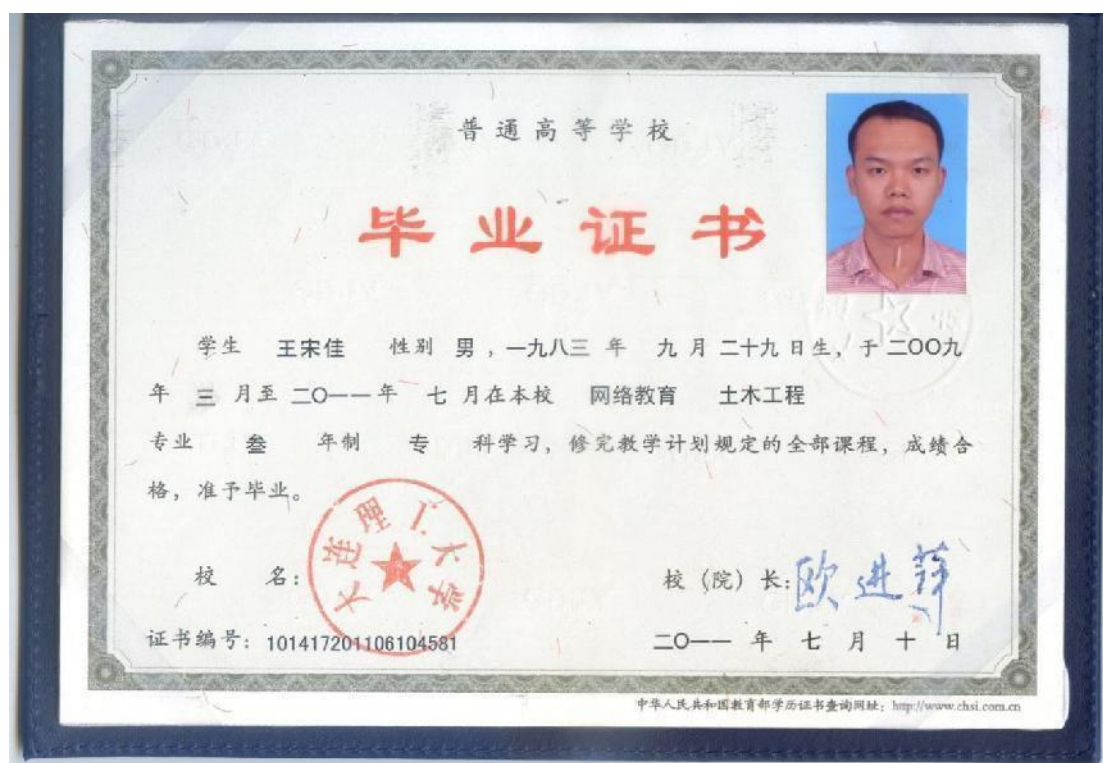 普通高等学校
毕业证书
学生 王宋佳 性别 男 ，一九八三 年 九 月 二十九 日生，于 二〇〇九
年 三 月至 二〇一一 年 七 月在本校 网络教育 土木工程
专业 叁 年制 专 科学习，修完教学计划规定的全部课程，成绩合
格，准予毕业。
大连理工大学
校 名：
校（院）长：欧进萍
证书编号：101417201106104581
二〇一一 年 七 月 十 日
中华人民共和国教育部学历证书查询网址：http://www.chsi.com.cn